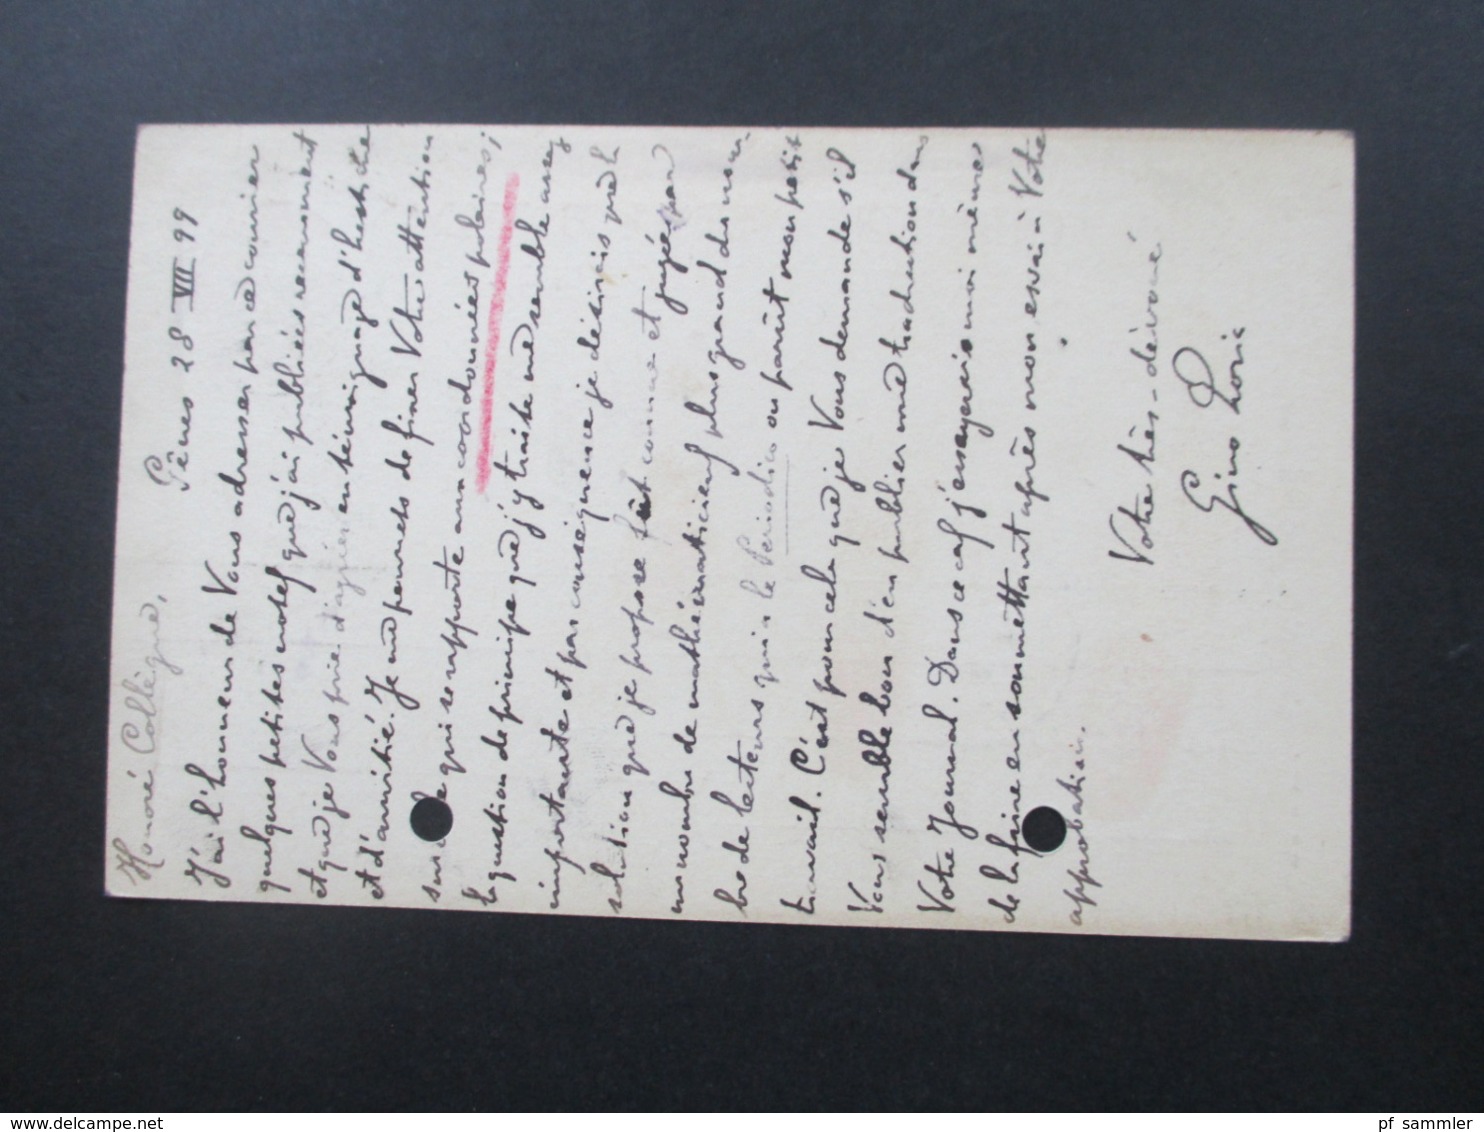 Gênes 28 VII 99
Honoré Collègue,
J'ai l'honneur de Vous adresser par ce courrier
quelques petites notes que j'ai publiées recemment
et que je Vous prie d'agréer en témoignage d'estime
et d'amitié. Je me permets de fixer Votre attention
sur qui se rapporte aux coordonnées polaires;
la question de principe que j'y traite me semble assez
importante et par conséquence je désirais que la
solution que je propose fût connue et jugée par
un nombre de mathématiciens plus grand du nom-
bre de lecteurs qui a le Periodico où parût mon petit
travail. C'est pour cela que je Vous demande s'il
Vous semble bon d'en publier une traduction dans
Votre Journal. Dans ce cas j'essayerais moi même
de la faire en soumettant après mon essai à Votre
approbation.
Votre très-dévoué
Gino Loria
www.delcampe.net
pf_sammler